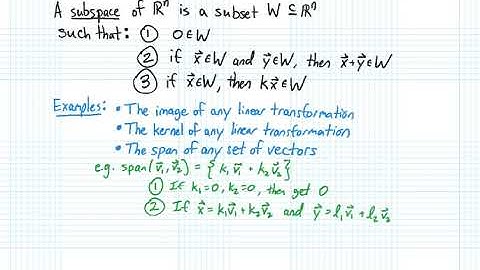 A subspace of ℝⁿ is a subset W ⊆ ℝⁿ
such that: ① 0∈W
② if x⃗∈W and y⃗∈W, then x⃗+y⃗∈W
③ if x⃗∈W, then kx⃗∈W
Examples: • The image of any linear transformation
• The kernel of any linear transformation
• The span of any set of vectors
e.g. span(v⃗₁,v⃗₂) = {k₁v⃗₁ + k₂v⃗₂}
① If k₁=0, k₂=0, then get 0
② If x⃗ = k₁v⃗₁+k₂v⃗₂ and y⃗ = l₁v⃗₁ + l₂v⃗₂